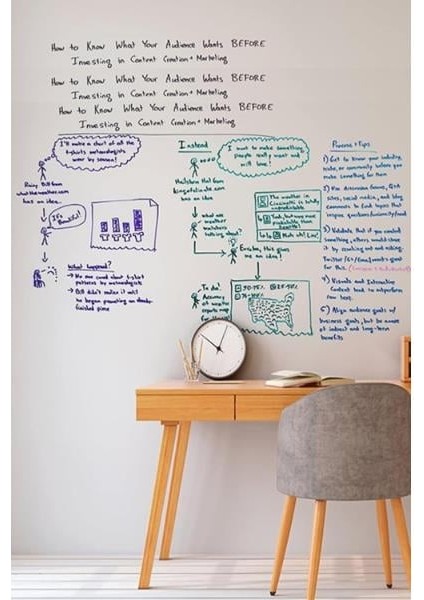 How to Know What Your Audience Wants BEFORE
Investing in Content Creation + Marketing
How to Know What Your Audience Wants BEFORE
Investing in Content Creation + Marketing
How to Know What Your Audience Wants BEFORE
Investing in Content Creation + Marketing
I'll make a chart of all the
t-shirts meteorologists
wear by season!
Rainy Bill from
whattheweather.com
has an idea...
It's
Beautiful!
What happened?
→ No one cared about t-shirt
patterns by meteorologists
→ Bill didn't make it viral
he began promoting an
finished piece
Instead
I want to make something
people really want and
will love!
Hailstorm Hal from
has an idea
what are
weather
watchers
talking about?
The weather in
Cincinnati is totally
unpredictable
Yeah, but way more
than Seattle!
Nuh uh! Lol!
Eureka, this gives
me an idea!
To do:
Accuracy
of weather
reports map
Process + Tips
1) Get to know your industry,
niche, or community before you
make something for them
2) Use
sites, social media, and blog
comments to find topics that
inspire questions/curiosity/
3) Validate that if you created
something, others would share
it by reaching out and asking.
Twitter great
for this.
4) Visuals and Interactive
Content tend to outperform
raw text.
5) Align audience goals w/
business goals, but be aware
of indirect and long-term
benefits